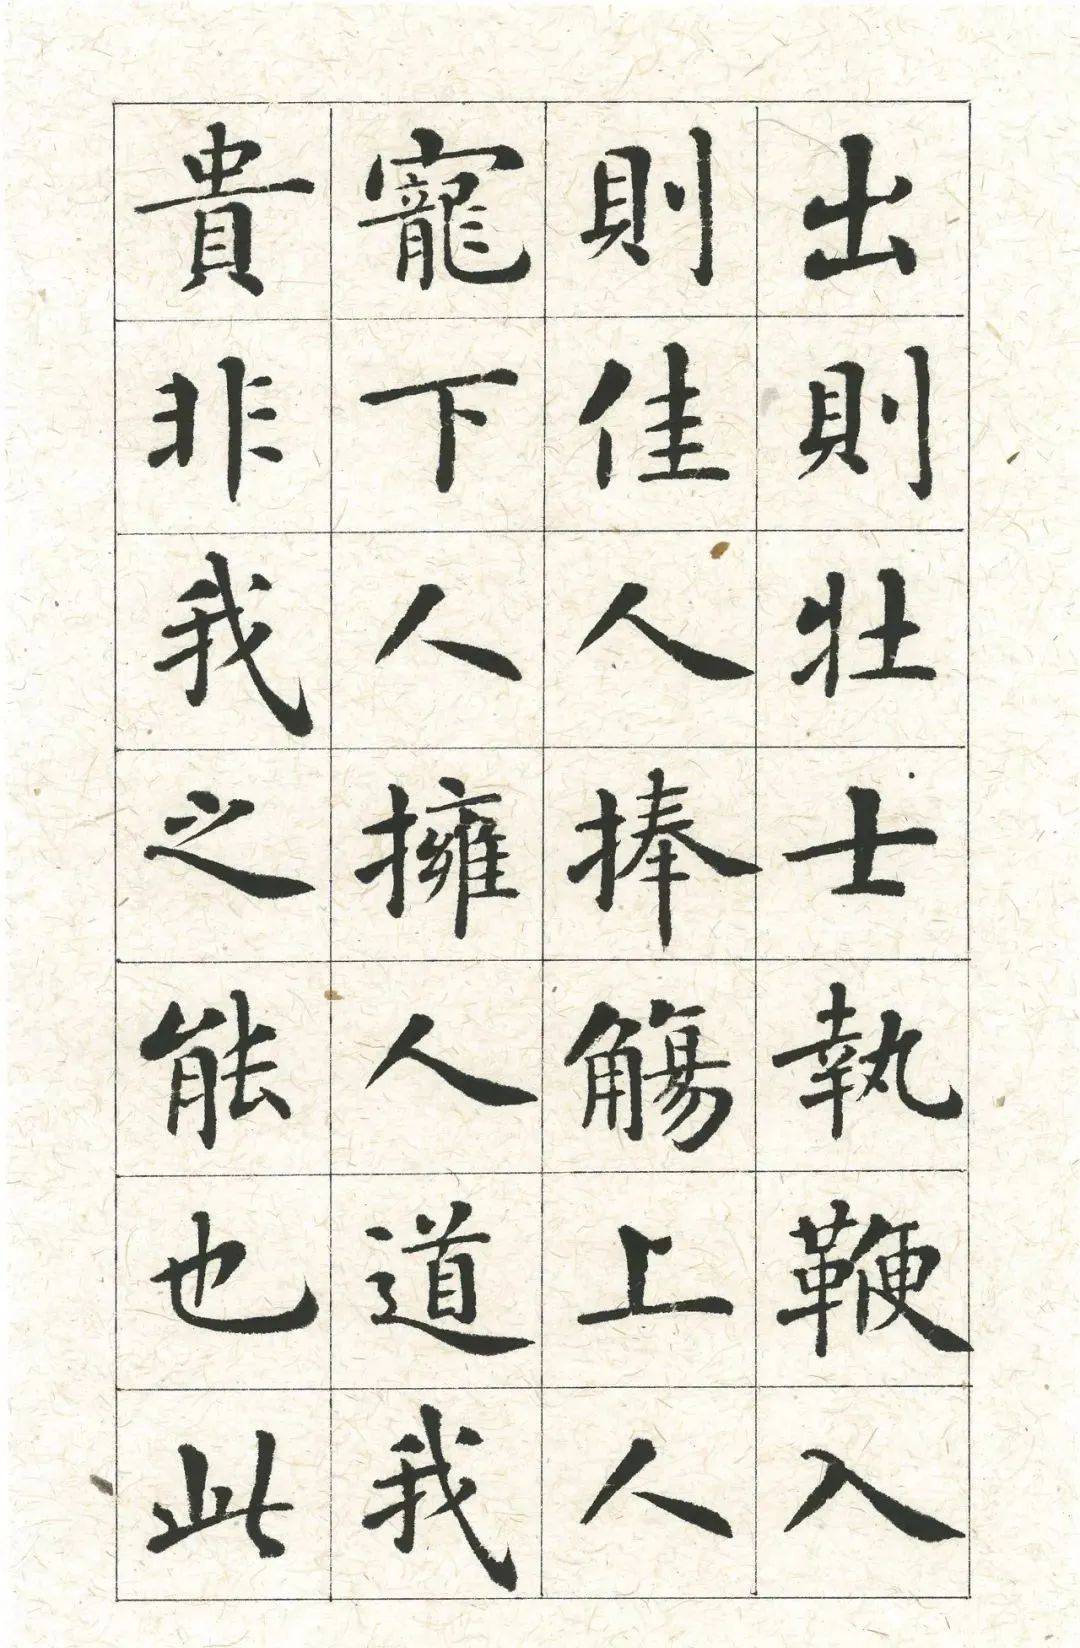 出則壯士執鞭入
則佳人捧觴上人
寵下人擁人道我
貴非我之能也此